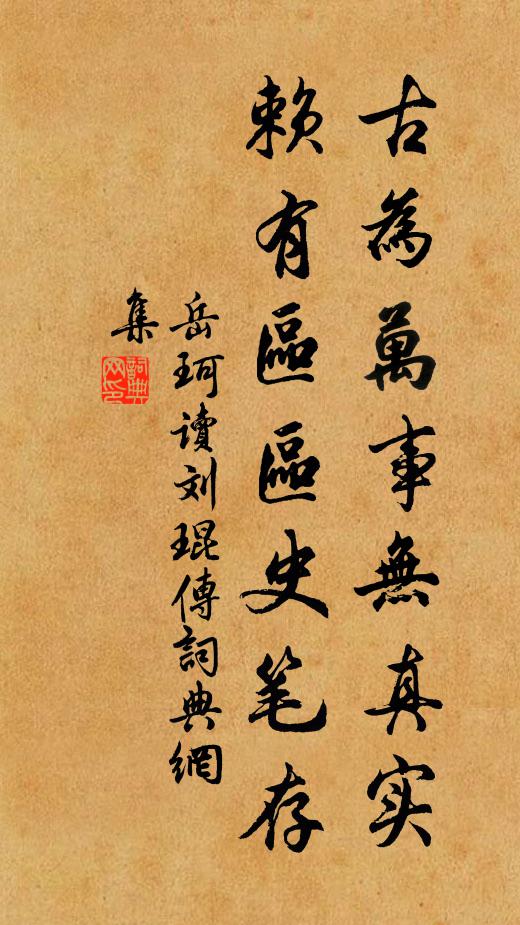 古為萬事無真实
賴有區區史笔存
岳珂读刘琨傳詞典網
集
詞典
网印